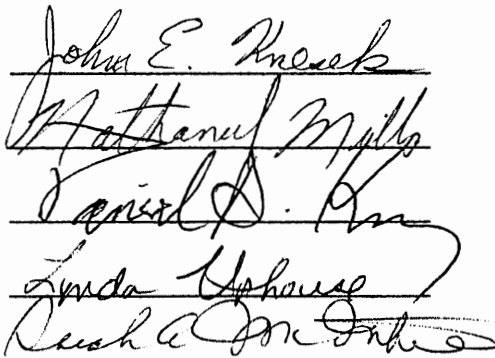 John E. Knesek
Nathaniel Mills
Daniel S.
Linda Uphouse
Sarah A McIntire